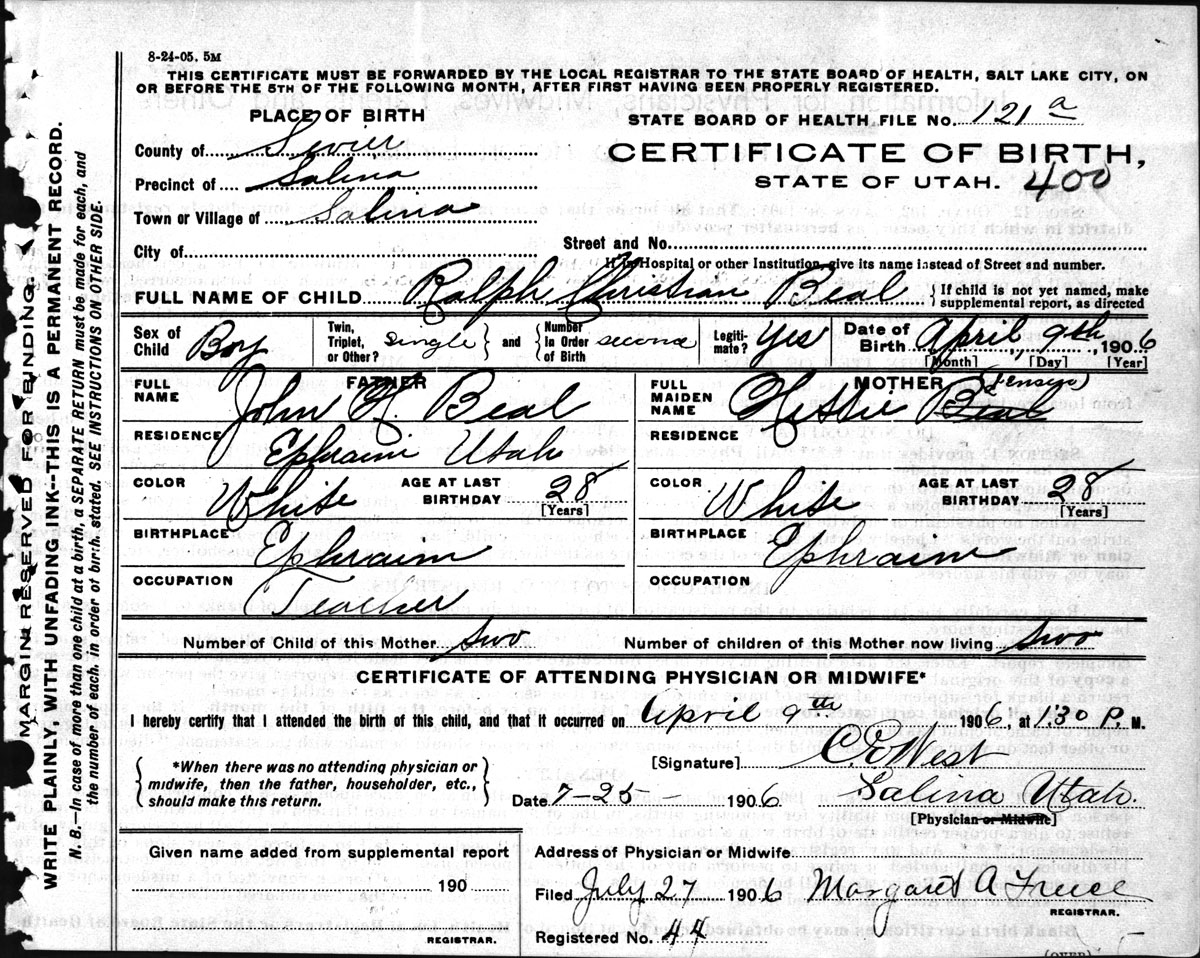 8-24-05. 5M
THIS CERTIFICATE MUST BE FORWARDED BY THE LOCAL REGISTRAR TO THE STATE BOARD OF HEALTH, SALT LAKE CITY, ON
OR BEFORE THE 5TH OF THE FOLLOWING MONTH, AFTER FIRST HAVING BEEN PROPERLY REGISTERED.
PLACE OF BIRTH
STATE BOARD OF HEALTH FILE NO. 121 a
County of Sevier
CERTIFICATE OF BIRTH,
Precinct of Salina
STATE OF UTAH. 400
Town or Village of Salina
City of
Street and No.
If in Hospital or other Institution, give its name instead of Street and number.
FULL NAME OF CHILD Ralph Christian Beal { If child is not yet named, make
supplemental report, as directed
Sex of Child Boy
Twin, Triplet, or Other? Single } and { Number In Order of Birth second
Legitimate? Yes
Date of Birth April 9th, 1906
[Month] [Day] [Year]
FATHER
FULL NAME John H. Beal
RESIDENCE Ephraim Utah
COLOR White AGE AT LAST BIRTHDAY 28
[Years]
BIRTHPLACE Ephraim
OCCUPATION Teacher
MOTHER
FULL MAIDEN NAME Beal
RESIDENCE
COLOR White AGE AT LAST BIRTHDAY 28
[Years]
BIRTHPLACE Ephraim
OCCUPATION
Number of Child of this Mother Two Number of children of this Mother now living Two
CERTIFICATE OF ATTENDING PHYSICIAN OR MIDWIFE*
I hereby certify that I attended the birth of this child, and that it occurred on April 9th 1906, at 1:30 P. M.
*When there was no attending physician or
midwife, then the father, householder, etc.,
should make this return.
[Signature] C. E. West
Date 7-25- 1906 Salina Utah.
[Physician or Midwife]
Given name added from supplemental report
190
REGISTRAR.
Address of Physician or Midwife
Filed July 27 1906 Margaret A
REGISTRAR.
Registered No. 44
(OVER)
MARGIN RESERVED FOR BINDING.
WRITE PLAINLY, WITH UNFADING INK--THIS IS A PERMANENT RECORD.
N. B.—In case of more than one child at a birth, a SEPARATE RETURN must be made for each, and
the number of each, in order of birth, stated. SEE INSTRUCTIONS ON OTHER SIDE.